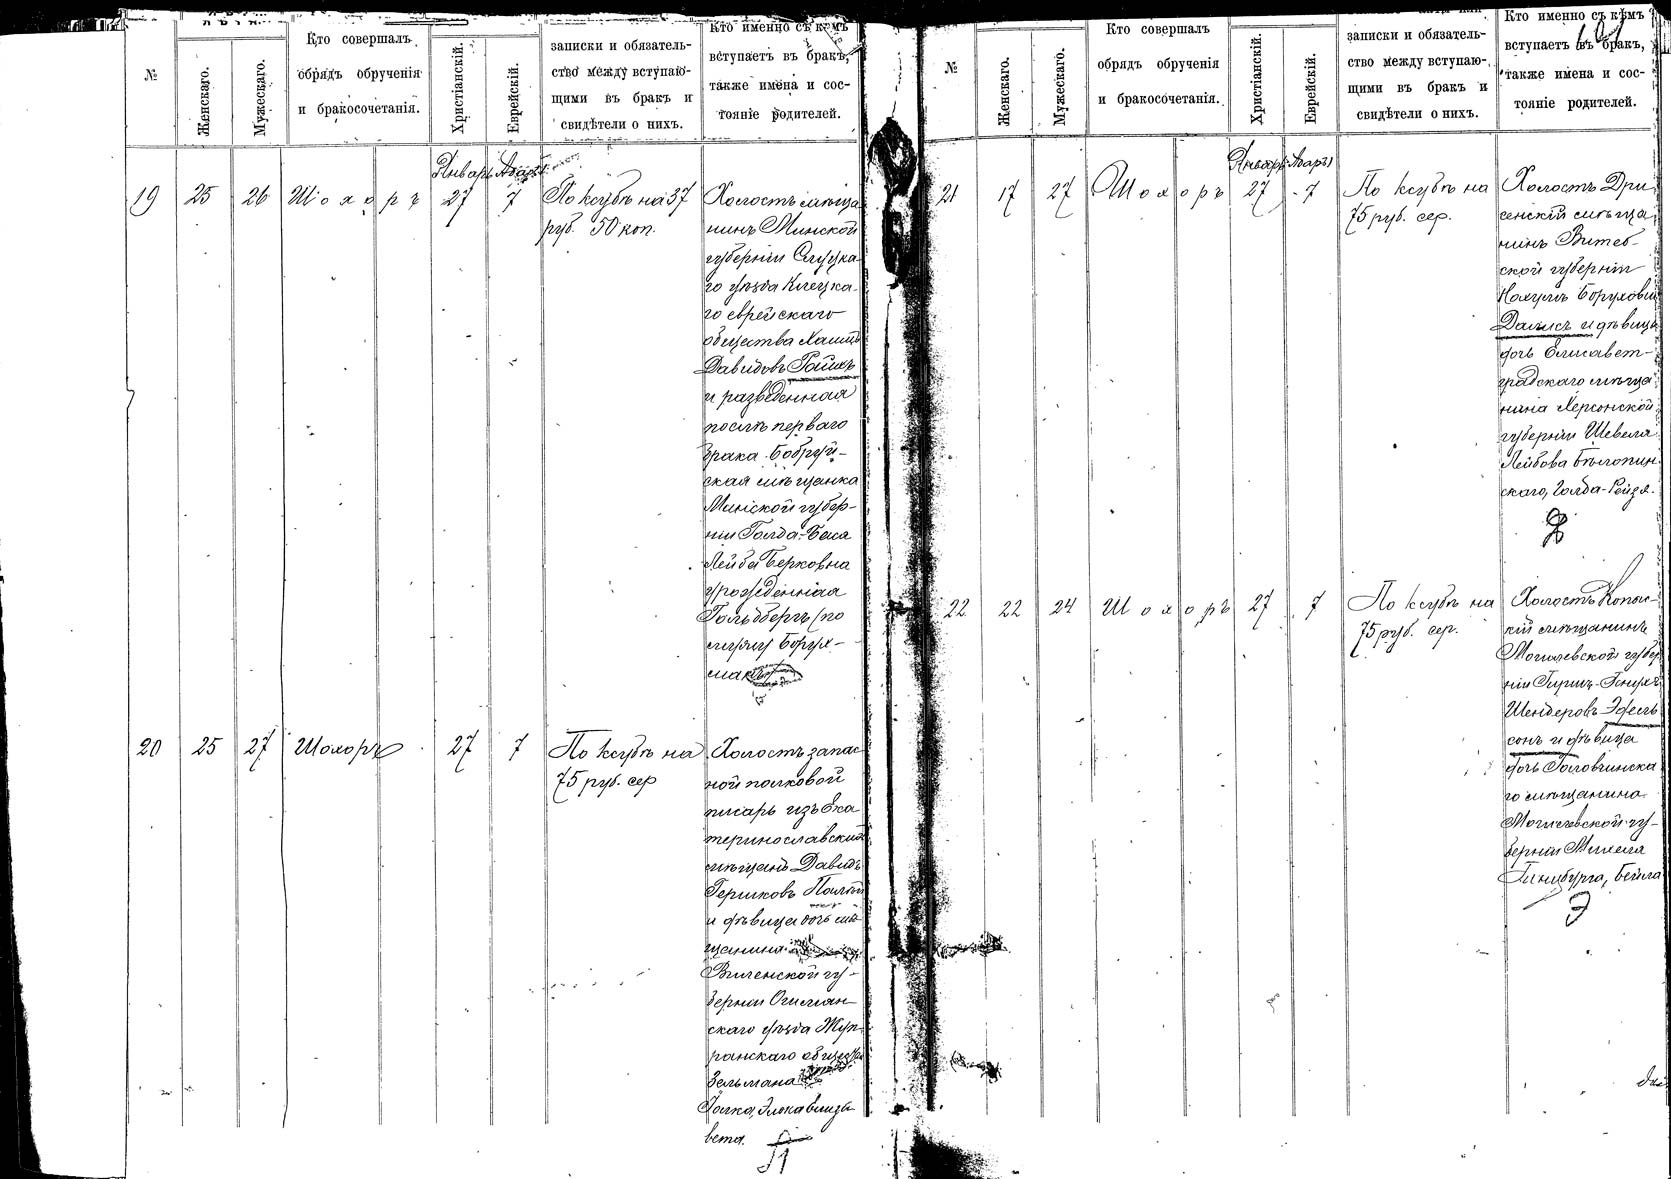 №
Женскаго.
Мужескаго.
Кто совершалъ
обрядъ обрученія
и бракосочетанія.
Христіанскій.
Еврейскій.
записки и обязатель-
ство между вступаю-
щими въ бракъ и
свидѣтели о нихъ.
Кто именно съ кѣмъ
вступаетъ въ бракъ,
также имена и сос-
тояніе родителей.
Январь Адаръ
19 25 26 Шохоръ 27 7
По ксубѣ на 37
руб. 50 коп.
Холостъ мѣща
нинъ Минской
губерніи Слуцка
го уѣзда Клецка
го еврейскаго
общества Хаимъ
Давидовъ Гайхъ
и разведенная
послѣ перваго
брака Бобруй-
ская мѣщанка
Минской губер-
ніи Голда-Бася
Лейба Берковна
урожденная
Гольдбергъ (по
мужу Борух-
20 25 27 Шохоръ 27 7
По ксубѣ на
75 руб. сер
Холостъ запас
ной полковой
писарь изъ Ека
теринославскихъ
мѣщанъ Давидъ
Гершковъ
и дѣвица дочь мѣ
щанина
Виленской гу-
берніи Ошмян-
скаго уѣзда Жуп-
ранскаго общества
Зельмана
вета.
№
Женскаго.
Мужескаго.
Кто совершалъ
обрядъ обрученія
и бракосочетанія.
Христіанскій.
Еврейскій.
записки и обязатель-
ство между вступаю-
щими въ бракъ и
свидѣтели о нихъ.
Кто именно съ кѣмъ
вступаетъ въ бракъ,
также имена и сос-
тояніе родителей.
Январь Адаръ
21 17 27 Шохоръ 27 7
По ксубѣ на
75 руб. сер.
Холостъ Дри
сенскій мѣща
нинъ Витеб-
ской губерніи
Нохумъ Борухови
Далисъ и дѣвица
дочь Елисавет-
градскаго мѣща
нина Херсонской
губерніи Шевеля
Лейбова Бѣлопин
скаго, Голда-Рейзя.
22 22 24 Шохоръ 27 7
По ксубѣ на
75 руб. сер.
Холостъ Копыс-
кій мѣщанинъ
Могилевской губер
ніи Гиршъ-Генухъ
Шендеровъ Эдель
сонъ и дѣвица
дочь Головчинска
го мѣщанина
Могилевской гу-
берніи Михеля
Гинцбурга, Бейла
Э